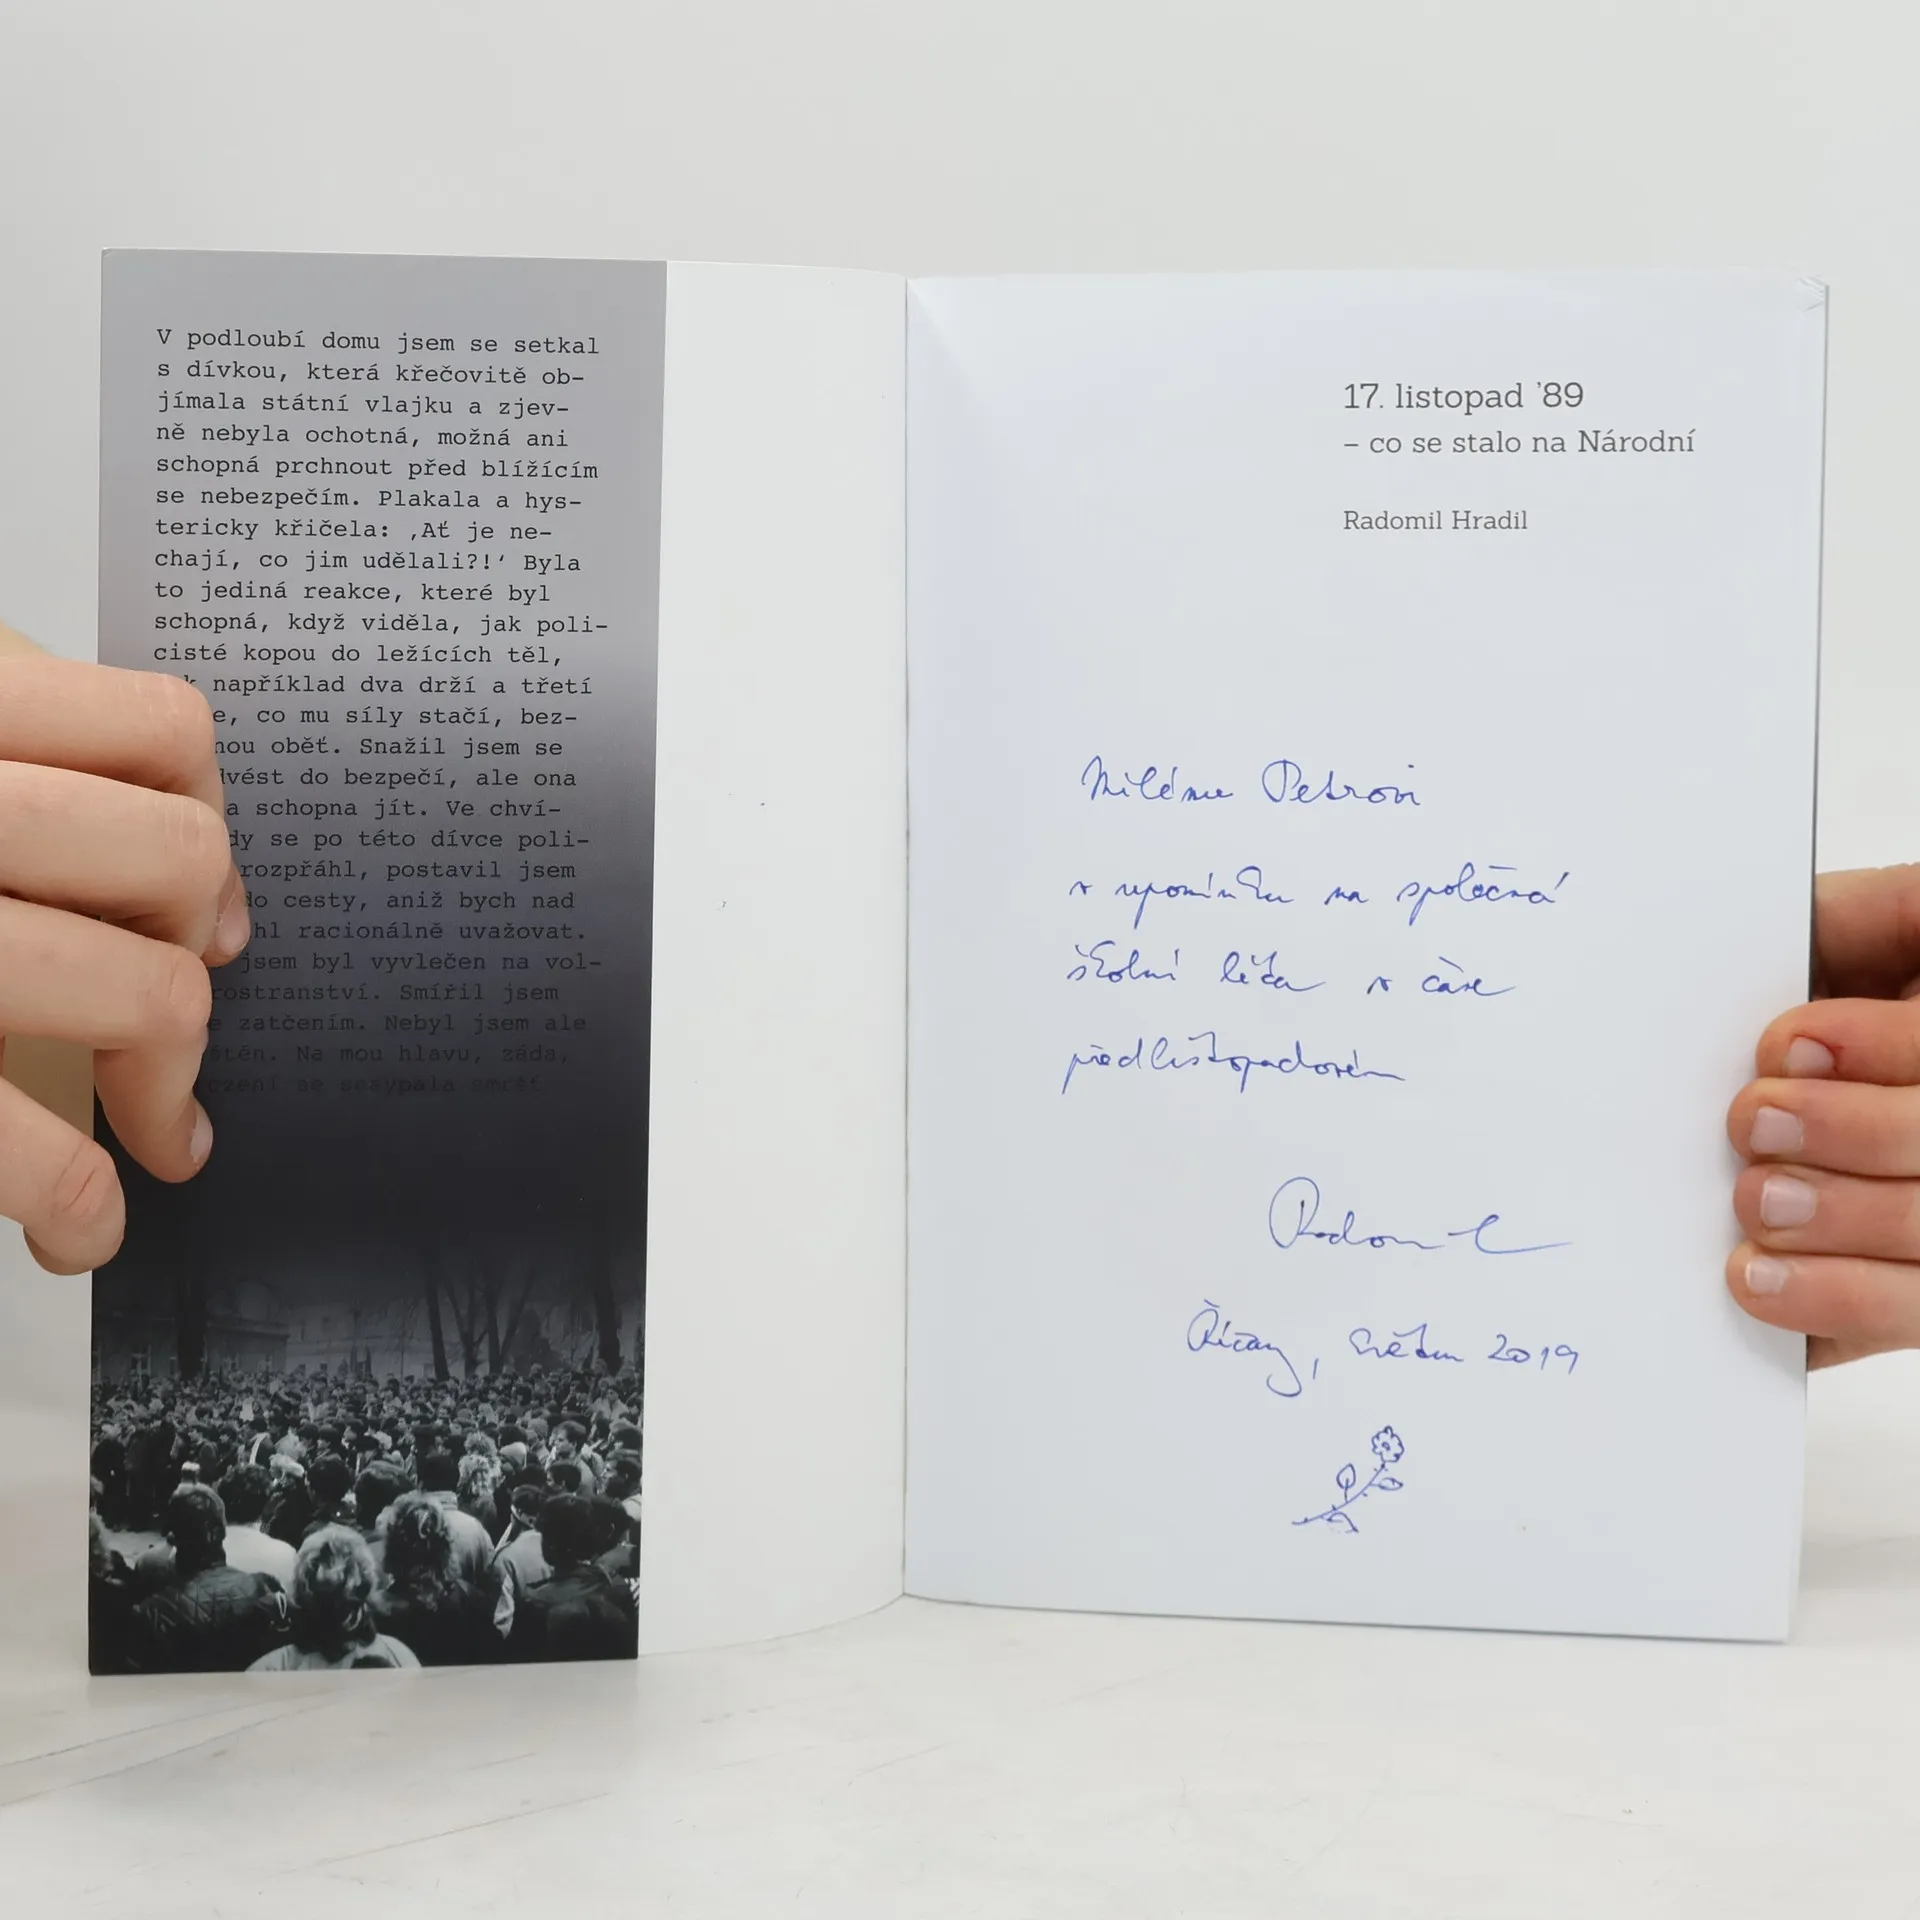 V podloubí domu jsem se setkal
s dívkou, která křečovitě ob-
jímala státní vlajku a zjev-
ně nebyla ochotná, možná ani
schopná prchnout před blížícím
se nebezpečím. Plakala a hys-
tericky křičela: ‚Ať je ne-
chají, co jim udělali?!‘ Byla
to jediná reakce, které byl
schopná, když viděla, jak poli-
cisté kopou do ležících těl,
k například dva drží a třetí
e, co mu síly stačí, bez-
nou oběť. Snažil jsem se
vést do bezpečí, ale ona
a schopna jít. Ve chví-
dy se po této dívce poli-
rozpřáhl, postavil jsem
do cesty, aniž bych nad
hl racionálně uvažovat.
jsem byl vyvlečen na vol-
rostranství. Smířil jsem
e zatčením. Nebyl jsem ale
štěn. Na mou hlavu, záda,
czení se sesypala smršť
17. listopad ’89
– co se stalo na Národní
Radomil Hradil
Milému Petrovi
v upomínku na společná
školní léta v čase
předlistopadovém
Radomil
Říčany, květen 2019